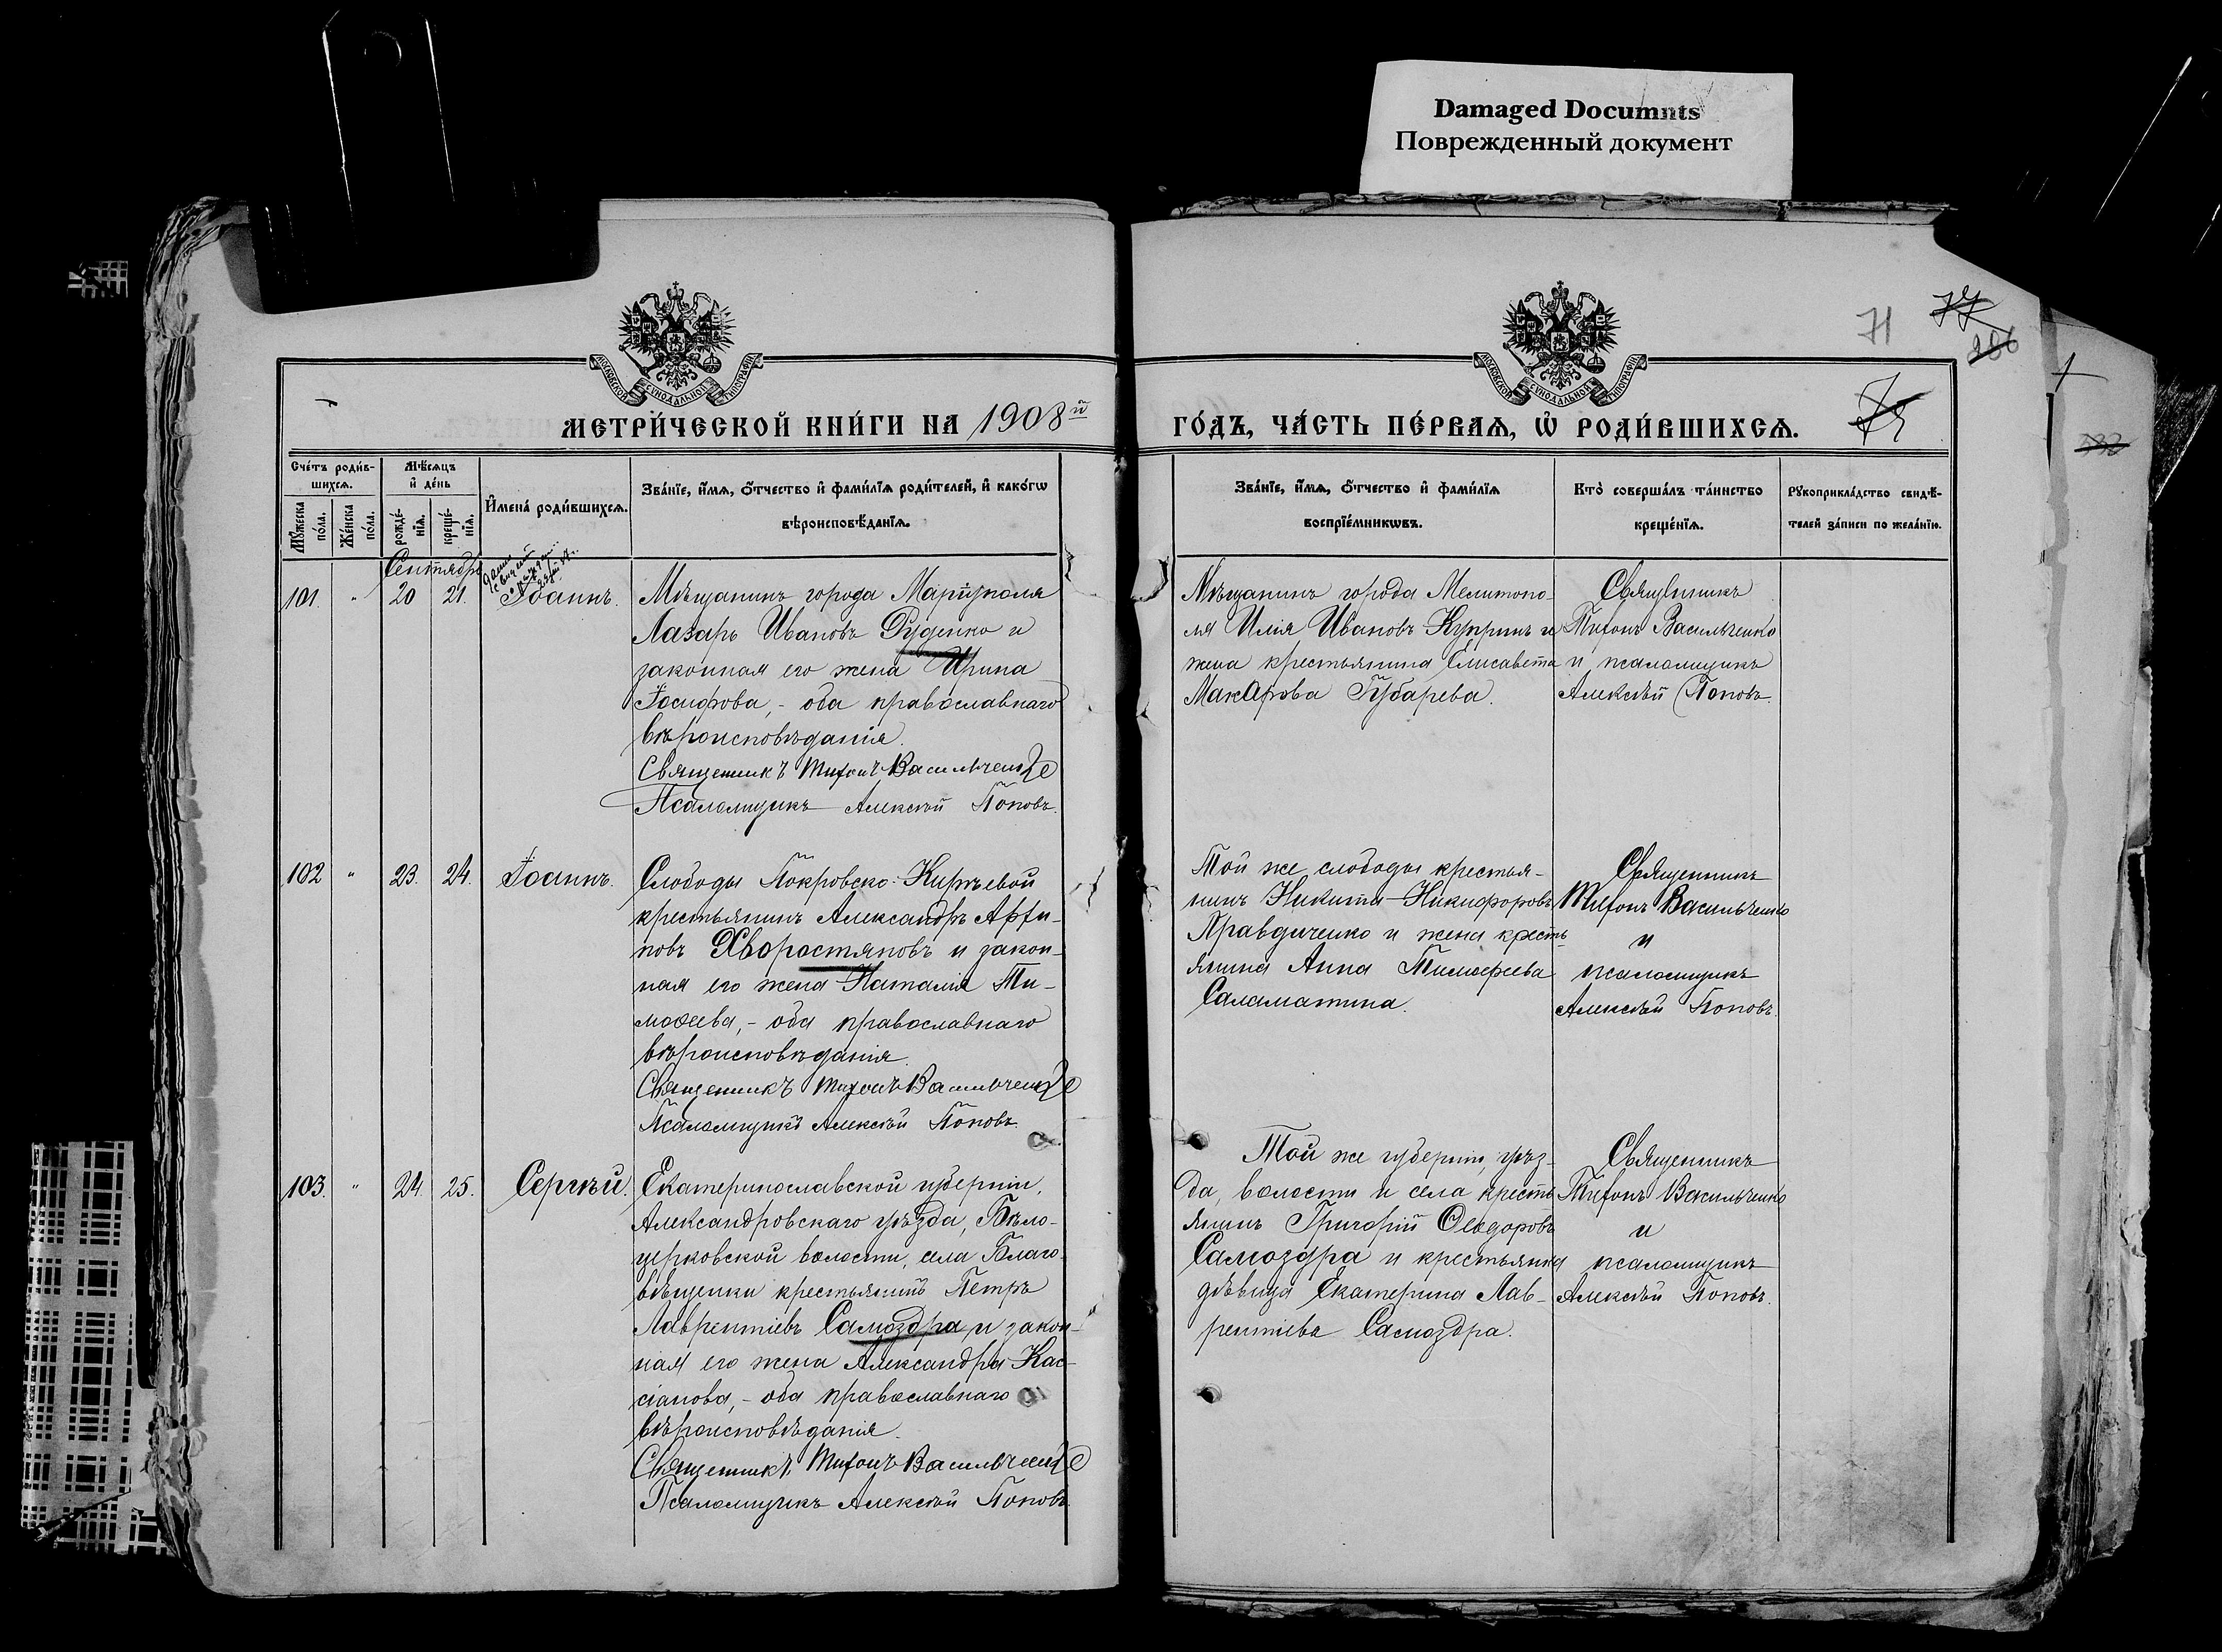 Damaged Documnts
Поврежденный документ
71
77
МОСКОВСКОЙ СѴНОДАЛЬНОЙ ТИПОГРАФІИ
МОСКОВСКОЙ СѴНОДАЛЬНОЙ ТИПОГРАФІИ
МЕТРИ́ЧЕСКОЙ КНИ́ГИ НА 1908й
ГО́ДЪ, ЧА́СТЬ ПЕ́РВАѦ, Ѡ҆ РОДИ́ВШИХСѦ.
Сче́тъ роди́в-
шихсѧ.
Мꙋ́жеска
по́ла.
Же́нска
по́ла.
Мѣ́сѧцъ
и҆ де́нь
рожде́-
нїѧ.
креще́-
нїѧ.
И҆мена̀ роди́вшихсѧ.
Зва́нїе, и҆́мѧ, ѻ҆́тчество и҆ фами́лїѧ роди́телей, и҆ како́гѡ
вѣроисповѣ́данїѧ.
Зва́нїе, и҆́мѧ, ѻ҆́тчество и҆ фами́лїѧ
воспрїе́мникѡвъ.
Кто̀ соверша́лъ та́инство
креще́нїѧ.
Рꙋкоприкла́дство свидѣ́-
телей за́писи по жела́нїю.
Сентябрь
101. " 20 21. Іоаннъ.
Мѣщанинъ города Маріуполя
Лазарь Ивановъ Руденко и
законная его жена Ирина
Іосифова, - оба православнаго
вѣроисповѣданія.
Священникъ Тихонъ Васильченко
Псаломщикъ Алексѣй Поповъ.
Мѣщанинъ города Мелитопо-
ля Илія Ивановъ Купринъ и
жена крестьянина Елисавета
Макарова Губарева.
Священникъ
Тихонъ Васильченко
и псаломщикъ
Алексѣй Поповъ.
102 " 23. 24. Іоаннъ.
Слободы Покровско-Кирѣевой
крестьянинъ Александръ Архи-
повъ Хворостяновъ и закон-
ная его жена Наталія Ти-
моѳеева, - оба православнаго
вѣроисповѣданія.
Священникъ Тихонъ Васильченко
Псаломщикъ Алексѣй Поповъ.
Той же слободы крестья-
нинъ Никита Никифоровъ
Правдиченко и жена кресть-
янина Анна Тимофеева
Саламатина.
Священникъ
Тихонъ Васильченко
и
псаломщикъ
Алексѣй Поповъ.
103. " 24. 25. Сергѣй.
Екатеринославской губерніи,
Александровскаго уѣзда, Бѣло-
церковской волости, села Благо-
вѣщенки крестьянинъ Петръ
Лаврентіевъ Самоздра и закон-
ная его жена Александра Кас-
сіанова, - оба православнаго
вѣроисповѣданія.
Священникъ Тихонъ Васильченко
Псаломщикъ Алексѣй Поповъ.
Той же губерніи, уѣз-
да, волости и села кресть-
янинъ Григорій Ѳеодоровъ
Самоздра и крестьянка
дѣвица Екатерина Лав-
рентіева Самоздра.
Священникъ
Тихонъ Васильченко
и
псаломщикъ
Алексѣй Поповъ.